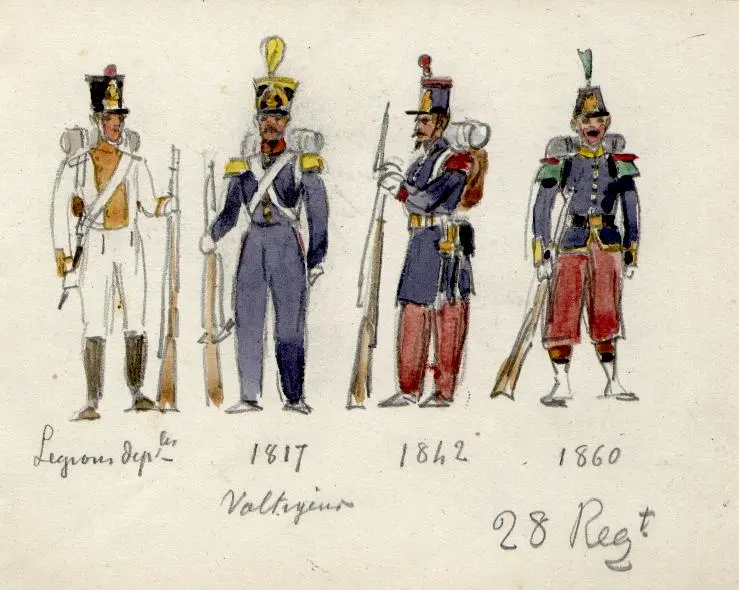 Légions dép^les 1817 1842 1860
Voltigeurs
28 Reg^t